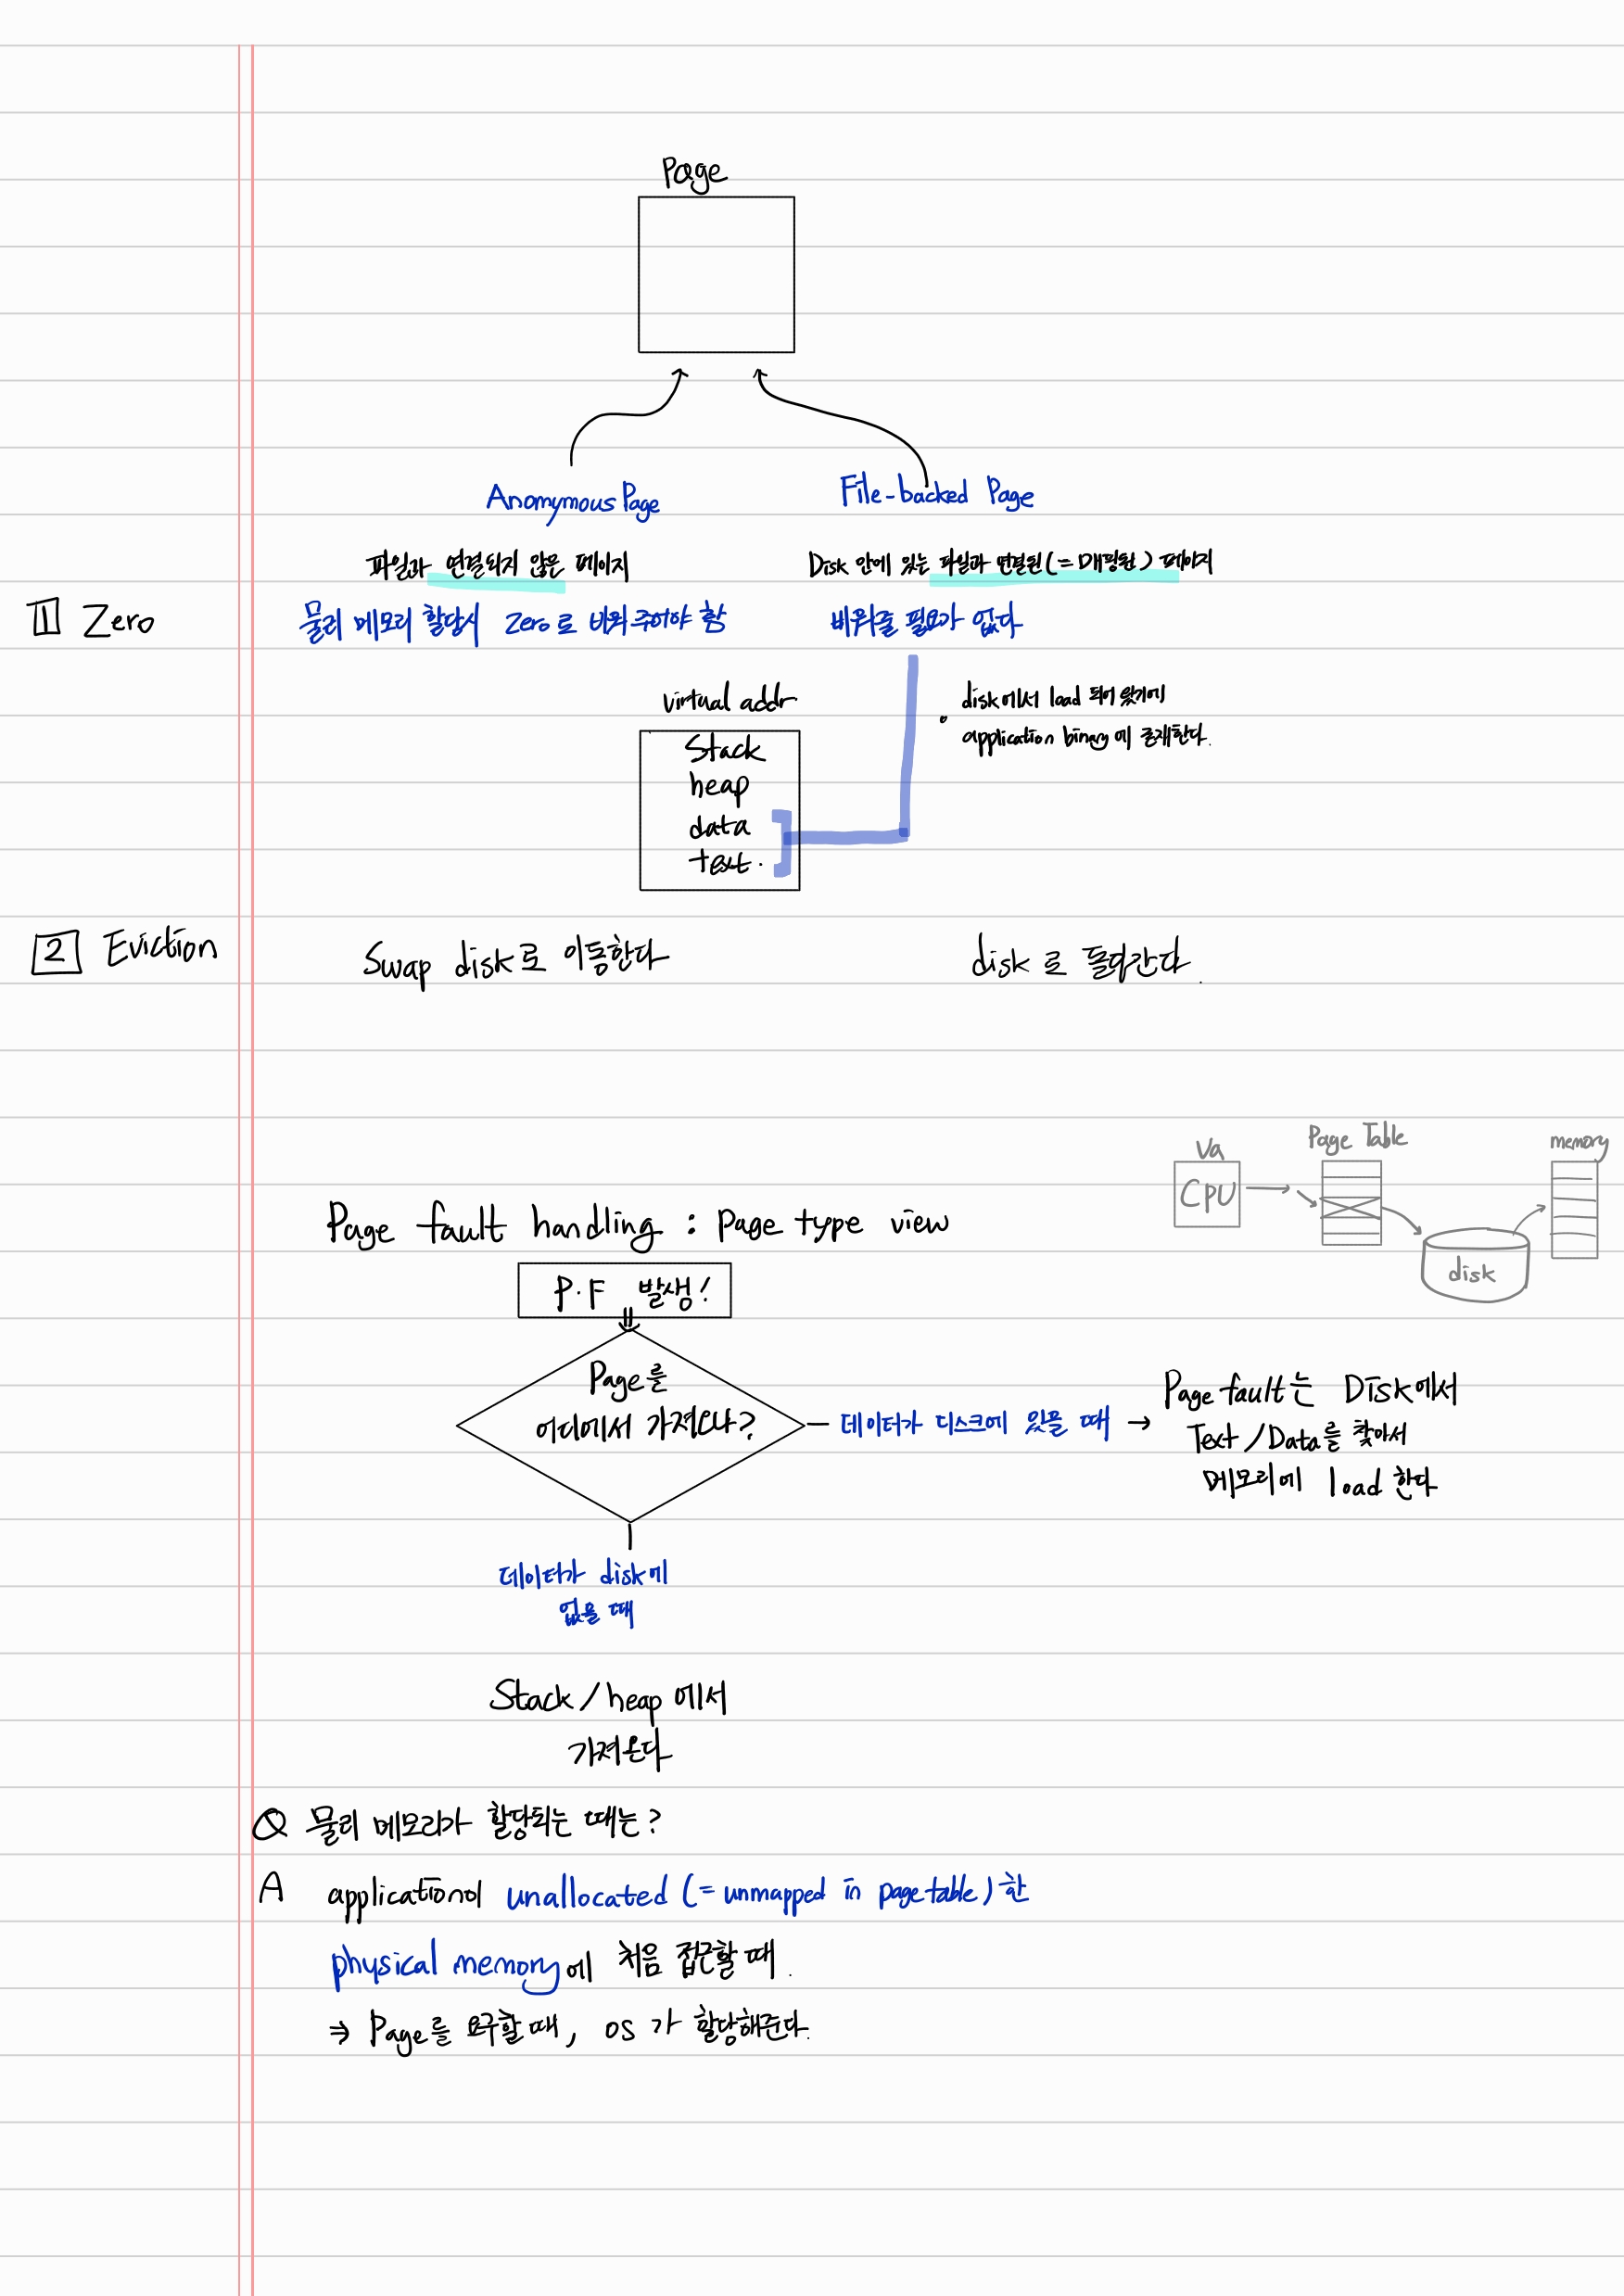 Page
Anonymous Page
File-backed Page
파일과 연결되지 않은 페이지
Disk 안에 있는 파일과 연결된 (= 매핑된) 페이지
1 Zero
물리 메모리 할당시 Zero로 바꿔 주어야 함
바꿔줄 필요가 없다
virtual addr
Stack
heap
data
text.
disk에서 load 되어 왔기에
application binary에 존재한다.
2 Eviction
Swap disk로 이동한다
disk로 돌아간다.
Va
CPU
Page Table
memory
disk
Page fault handling : Page type view
P.F 발생!
Page를
어디에서 가져오나?
데이터가 디스크에 있을 때 →
Page fault는 Disk에서
Text/Data를 찾아서
메모리에 load 한다
데이터가 disk에
없을 때
Stack/heap에서
가져온다
Q 물리 메모리가 할당되는 때는?
A application이 unallocated (= unmapped in page table) 한
physical memory에 처음 접근할 때.
⇒ Page를 요구할 때, OS가 할당해준다.